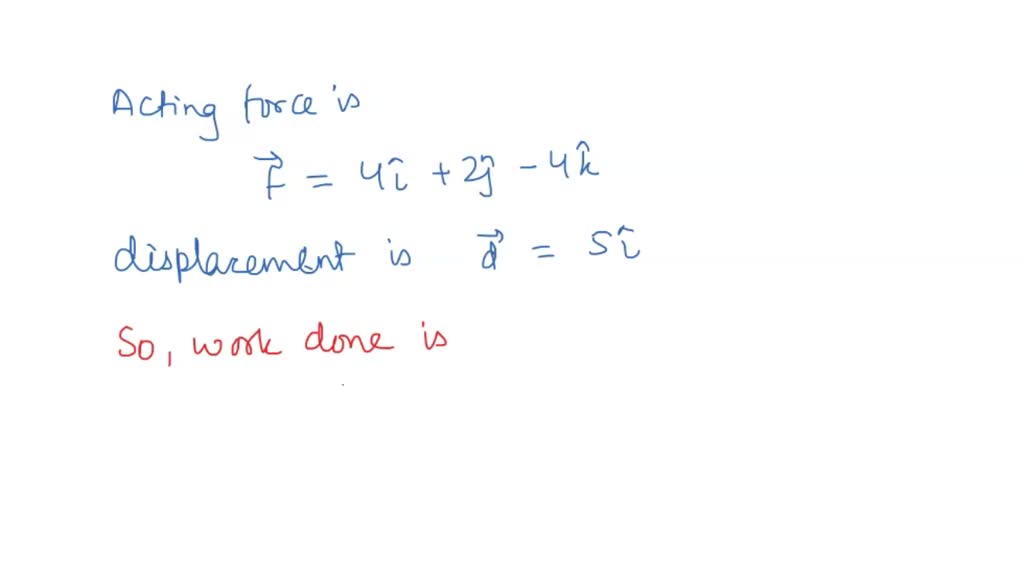 Acting force is
F⃗ = 4î + 2ĵ - 4k̂
displacement is d⃗ = 5î
So, work done is